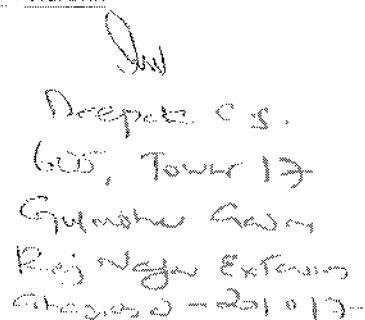 Deepak C S.
605, Tower 17
Gulmohar Garden
Raj Nagar Extension
Ghaziabad - 201017